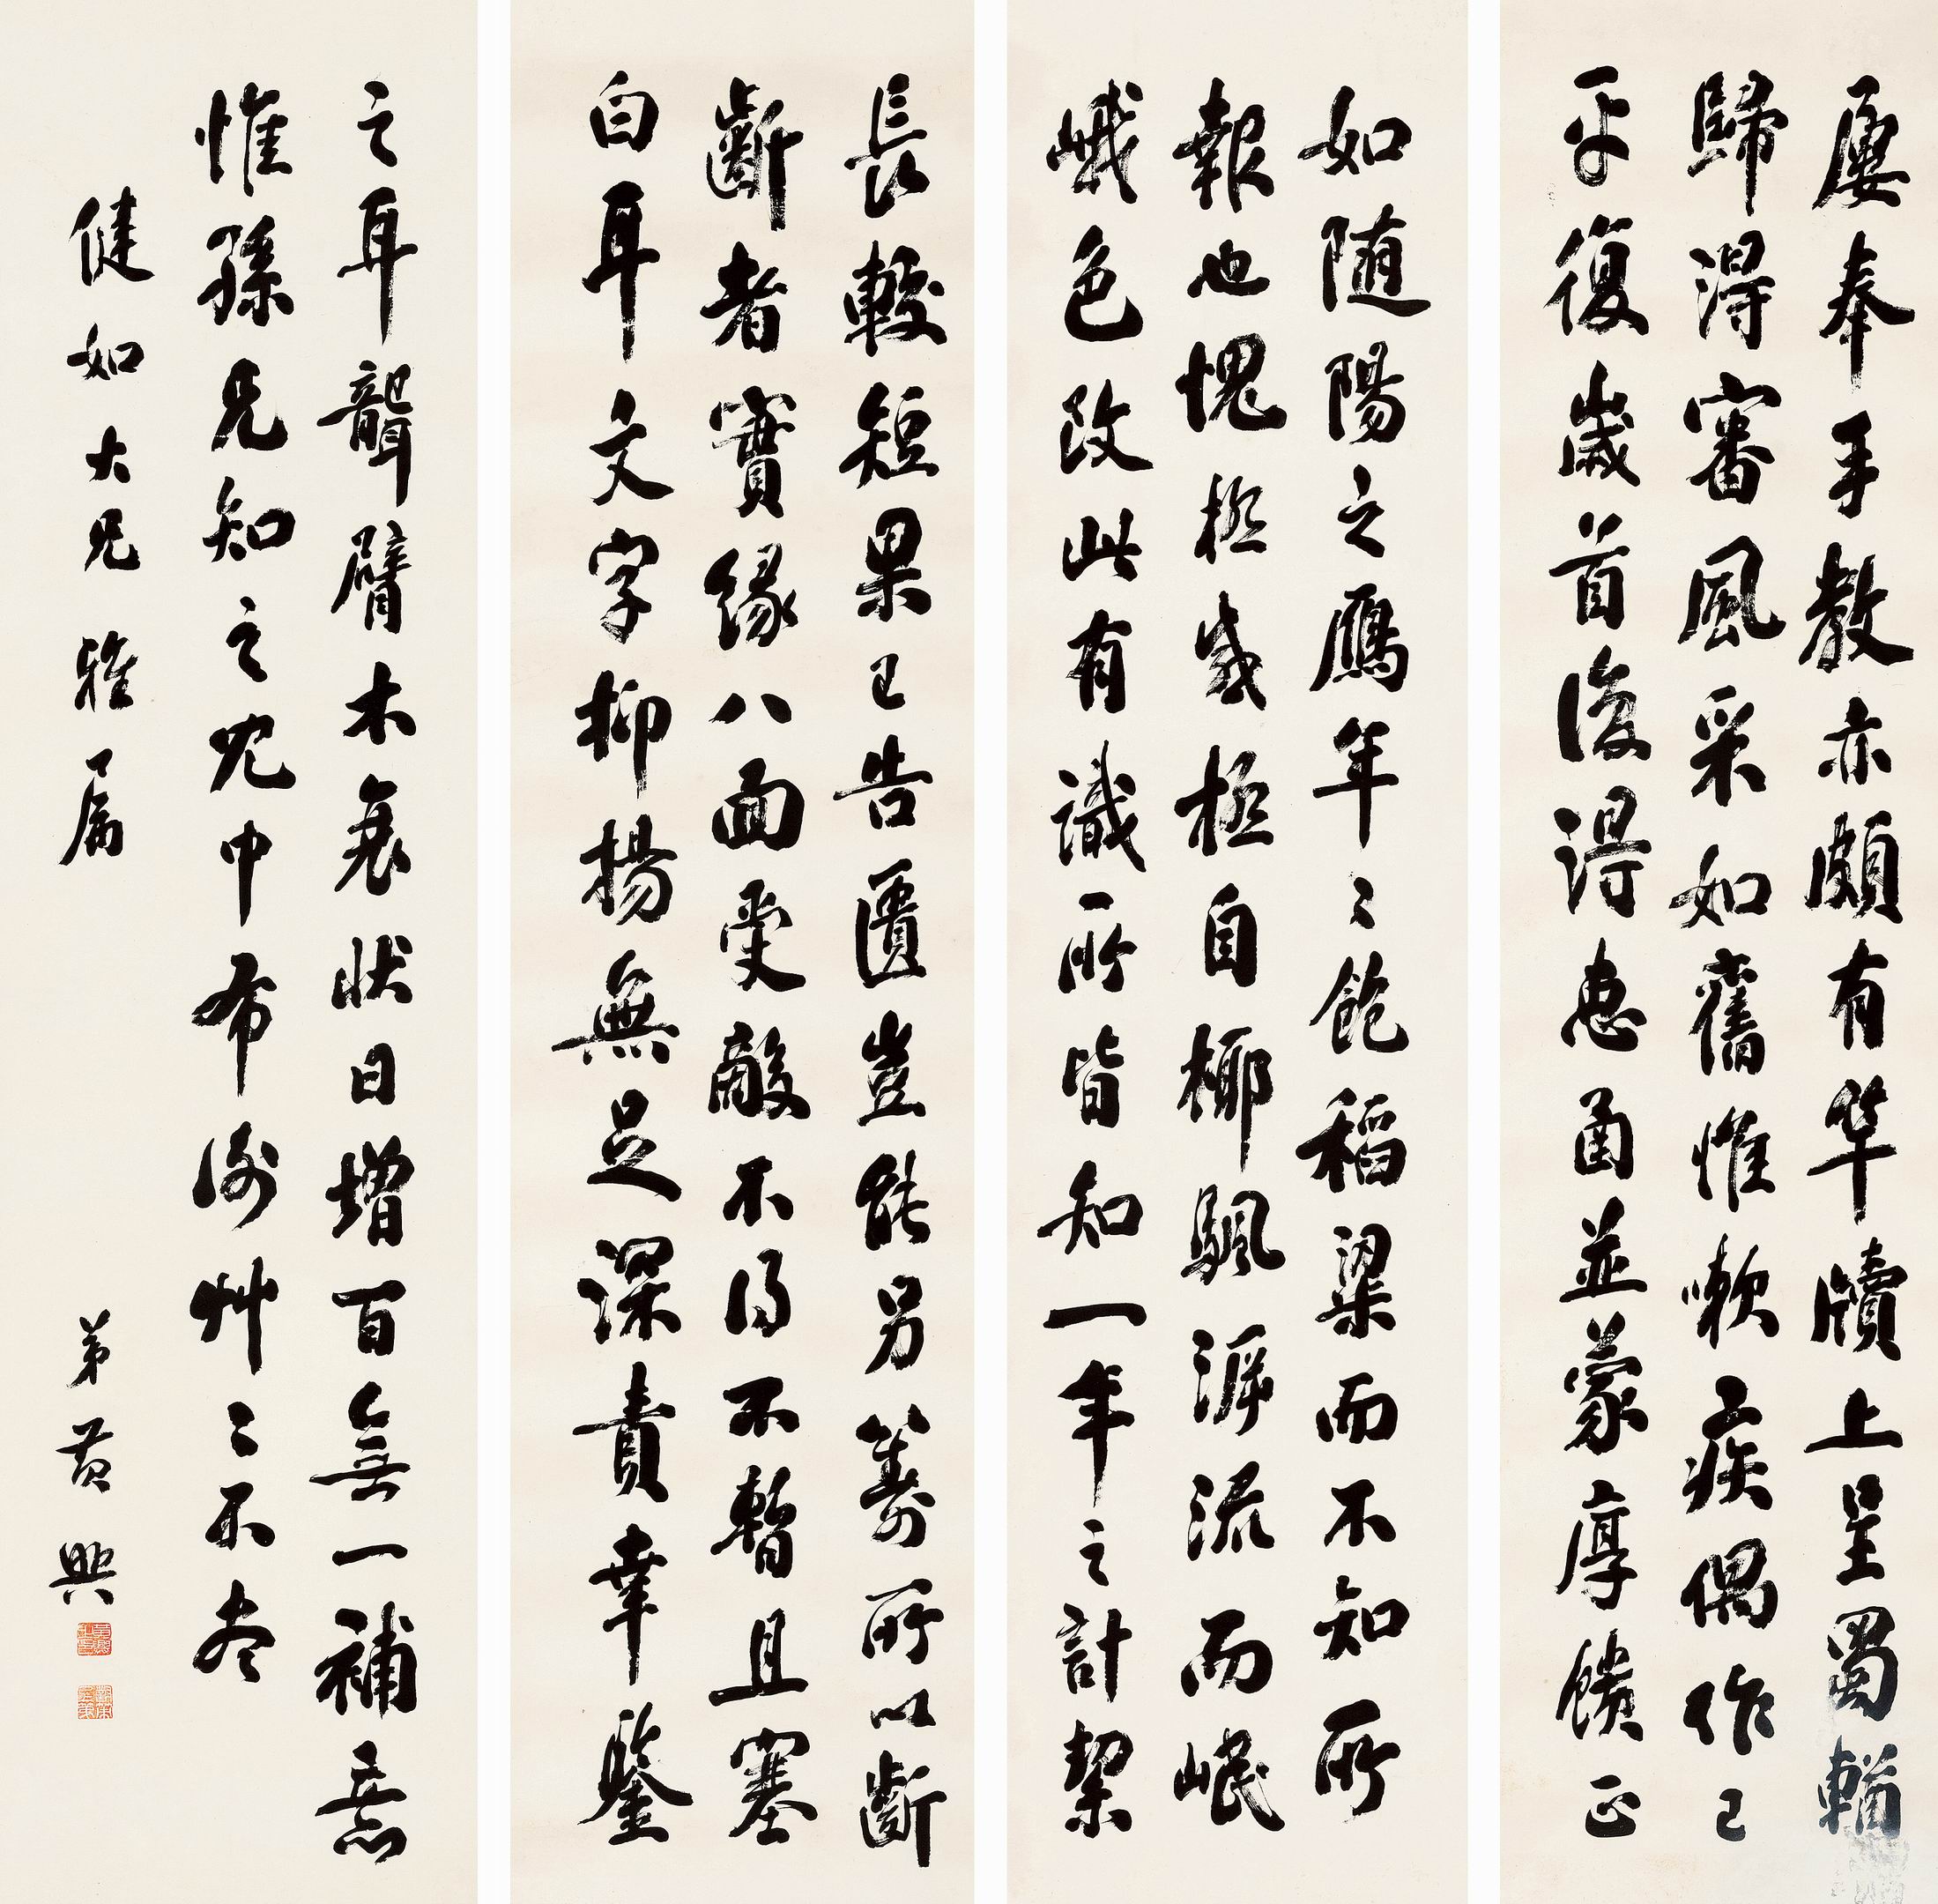 屢奉手教亦頗有笔牘上呈蜀輶
歸得審風采如舊惟嗽疾偶作已
平復歲首復得惠函並蒙厚饋正
如随陽之鴈年〻飽稻粱而不知所
報也愧極感極自椰颿游流而岷
峨色改此有識所皆知一年之計絜
長較短果已告匱豈能另籌所以斷
斷者實緣八面受敵不得不暫且塞
白耳文字抑揚無足深責幸鑒
之耳聾臂木衰狀日增百無一補言
惟孫兄知之冗中布謝艸〻不尽
健如大兄雅属
弟黄興